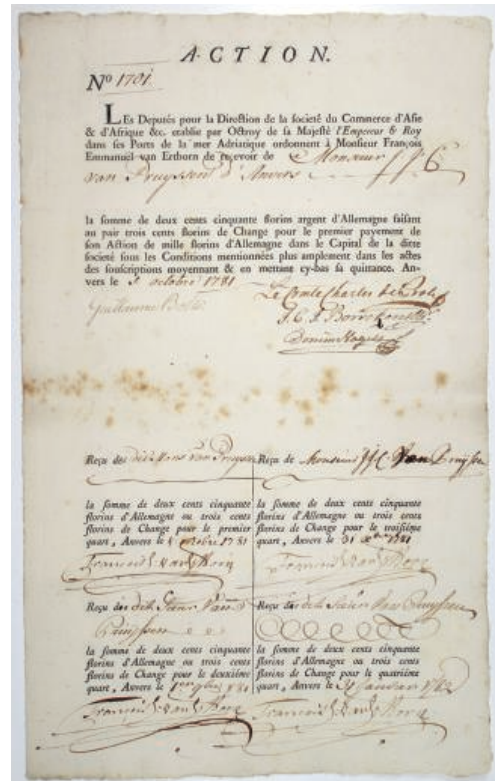 A·CTION.
N.º 1701.
LEs Deputés pour la Direction de la societé du Commerce d'Asie
& d'Afrique &c. etablie par Octroy de sa Majesté l'Empereur & Roy
dans ses Ports de la mer Adriatique ordonnent à Monsieur François
Emmanuel van Ertborn de recevoir de Monsieur J. J. C.
van Pruyssen d'Anvers
la somme de deux cents cinquante florins argent d'Allemagne faisant
au pair trois cents florins de Change pour le premier payement de
son Action de mille florins d'Allemagne dans le Capital de la ditte
societé sous les Conditions mentionnées plus amplement dans les actes
des souscriptions moyennant & en mettant cy-bas sa quittance. An-
vers le octobre 1781
Guillaume Bolts Le Comte Charles de Proli
J. C. J.
Reçu des dit Mons van Pruyssen
la somme de deux cents cinquante
florins d'Allemagne ou trois cents
florins de Change pour le premier
quart, Anvers le octobre 1781
Reçu de Monsieur J J C Van Pruyssen
la somme de deux cents cinquante
florins d'Allemagne ou trois cents
florins de Change pour le troisième
quart, Anvers le 31 1781
Reçu du dit Sieur Van
Pruyssen
la somme de deux cents cinquante
florins d'Allemagne ou trois cents
florins de Change pour le deuxième
quart, Anvers le
Reçu du dit Sieur Van Pruyssen
la somme de deux cents cinquante
florins d'Allemagne ou trois cents
florins de Change pour le quatrième
quart, Anvers le 31 Janvier 1782